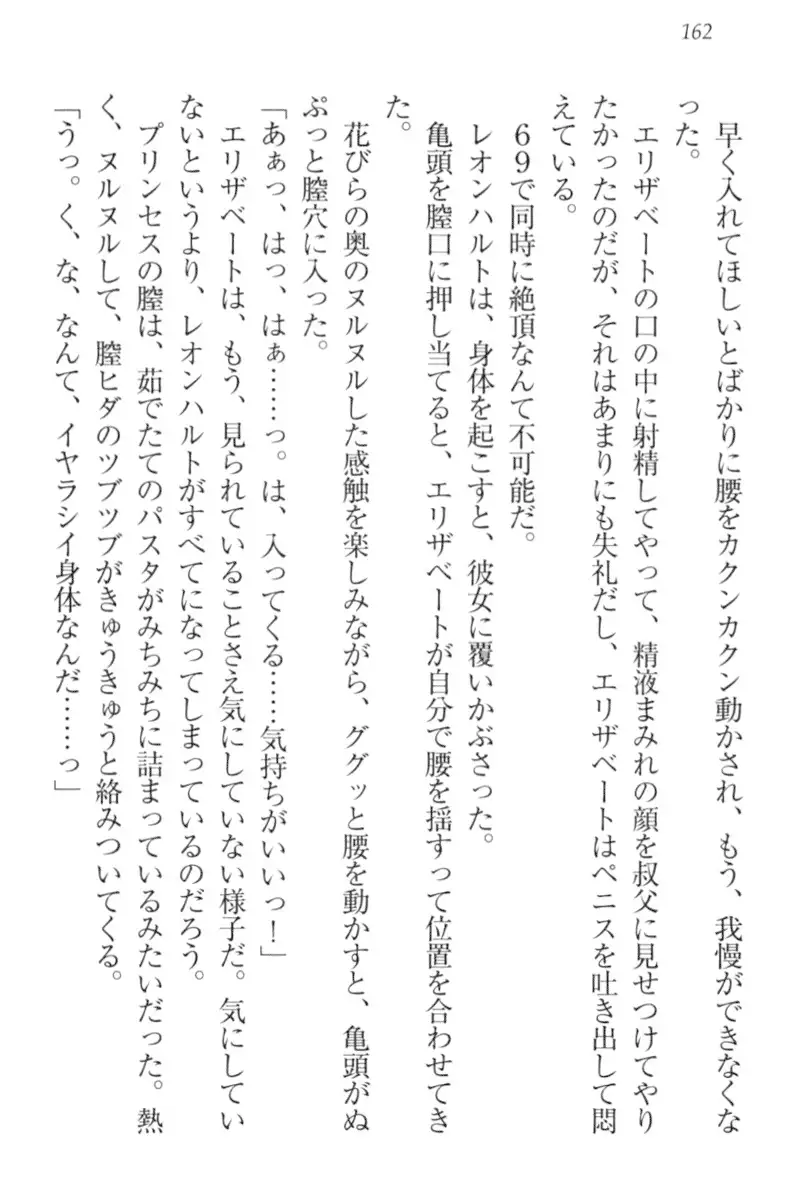 162
早く入れてほしいとばかりに腰をカクンカクン動かされ、もう、我慢ができなくな
った。
エリザベートの口の中に射精してやって、精液まみれの顔を叔父に見せつけてやり
たかったのだが、それはあまりにも失礼だし、エリザベートはペニスを吐き出して悶
えている。
69で同時に絶頂なんて不可能だ。
レオンハルトは、身体を起こすと、彼女に覆いかぶさった。
亀頭を膣口に押し当てると、エリザベートが自分で腰を揺すって位置を合わせてき
た。
花びらの奥のヌルヌルした感触を楽しみながら、ググッと腰を動かすと、亀頭がぬ
ぷっと膣穴に入った。
「あぁっ、はっ、はぁ……っ。は、入ってくる……気持ちがいいっ！」
エリザベートは、もう、見られていることさえ気にしていない様子だ。気にしてい
ないというより、レオンハルトがすべてになってしまっているのだろう。
プリンセスの膣は、茹でたてのパスタがみちみちに詰まっているみたいだった。熱
く、ヌルヌルして、膣ヒダのツブツブがきゅうきゅうと絡みついてくる。
「うっ。く、な、なんて、イヤラシイ身体なんだ……っ」